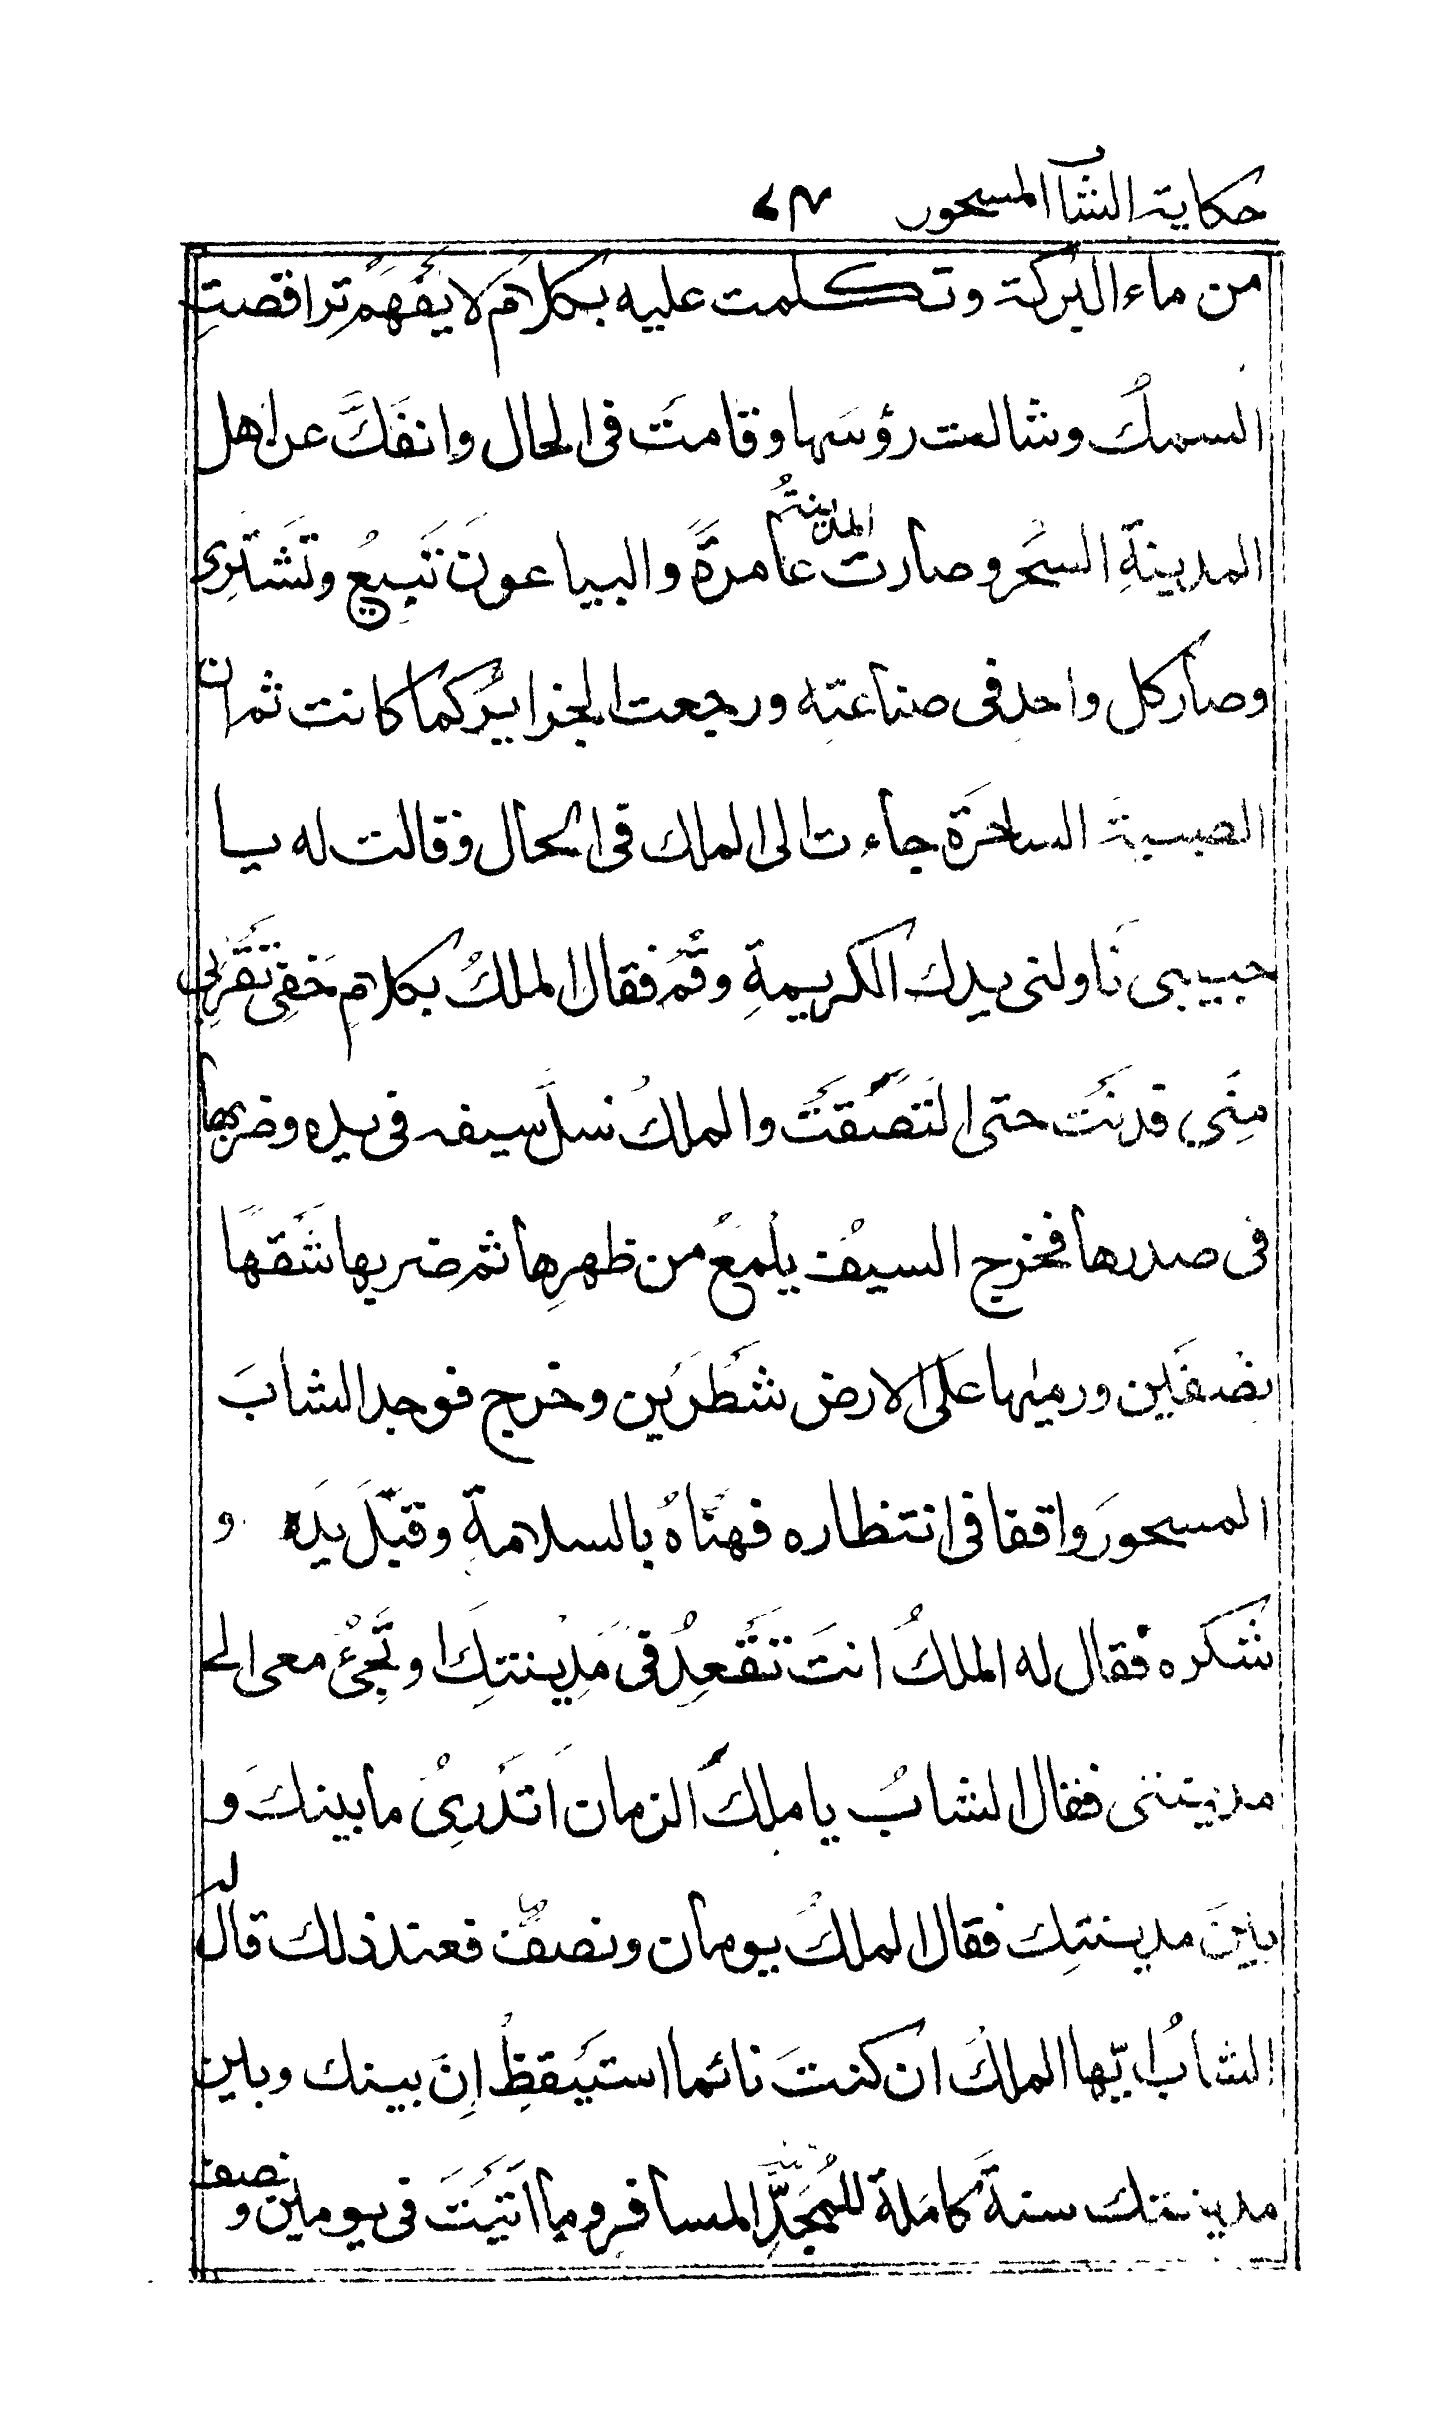 حكاية الشاب المسحور ٧٣
من ماء البركة وتكلمت عليه بكلام لا يفهم تراقصت
السمك وشالت رؤسها وقامت فى الحال وانفك عن اهل
المدينةِ السحر وصارت المدينة عامرةً والبياعون تبيع وتشترى
وصار كل واحد فى صناعته ورجعت الجزاير كما كانت ثم ان
الصبية الساحرة جاءت الى الملك فى الحال وقالت له يا
حبيبى ناولنى يدك الكريمةِ وقُم فقال الملك بكلام خفى تقربى
مِنّى فدنت حتى التصقت والملكُ سلّ سيفه فى يده وضربها
فى صدرها فخرج السيف يلمعُ من ظهرِها ثم ضربها شقها
نصفين ورميٰها على الارض شطرين وخرج فوجد الشابَ
المسحورَ واقفا فى انتظاره فهنّاهُ بالسلامة وقبّل يده و
شكره فقال له الملكُ انتَ تقعدُ فى مدينتِك او تجىُٔ معى الى
مدينتى فقال الشابُ يا ملكَ الزمان اتدرىْ ما بينكَ و
بينَ مدينتِك فقال الملكُ يومان ونصفٌ فعند ذلك قال له
الشابُ ايّها الملكَ ان كنتَ نائما استيقظْ اِنَ بينك وبين
مدينتك سنةً كاملة للمُجدِّ المسافر وما اتيتَ فى يومين و نصف